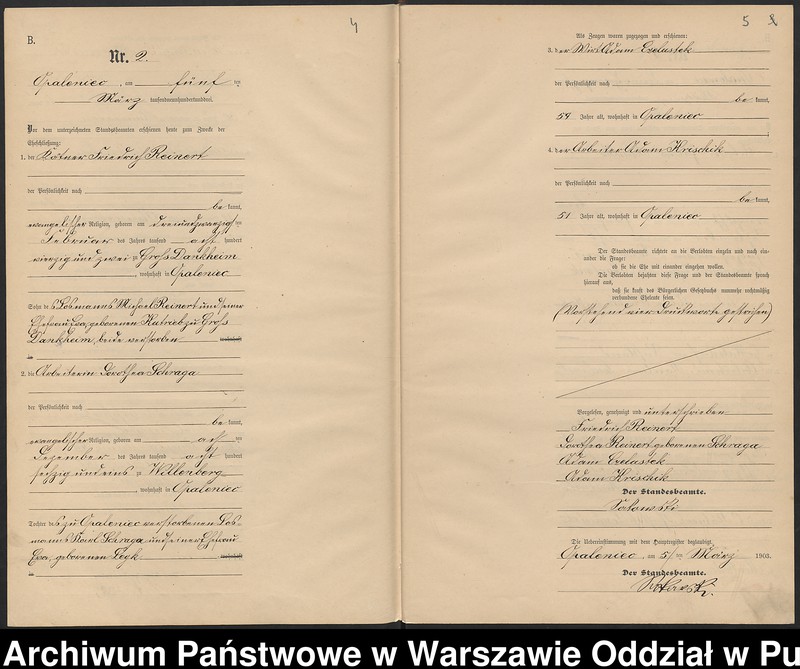 4
B.
Nr. 2.
Opaleniec, am fünf ten
März tausendneunhundertunddrei.
Vor dem unterzeichneten Standesbeamten erschienen heute zum Zweck der
Eheschließung:
1. der Kötner Friedrich Reinert
der Persönlichkeit nach
be kannt,
evangelischer Religion, geboren am dreiundzwanzigsten
Februar des Jahres tausend acht hundert
vierzig und zwei zu Groß Dankheim
, wohnhaft in Opaleniec
Sohn des Losmanns Michael Reinert und seiner
Ehefrau Eva, geborenen Katrieb zu Groß
Dankheim, beide verstorben wohnhaft
in
2. die Arbeiterin Dorothea Schraga
der Persönlichkeit nach
be kannt,
evangelischer Religion, geboren am acht ten
Dezember des Jahres tausend acht hundert
sechzig und eins zu Willenberg
, wohnhaft in Opaleniec
Tochter des zu Opaleniec verstorbenen Los-
manns Karl Schraga und seiner Ehefrau
Eva, geborenen Legk wohnhaft
in
5 &
Als Zeugen waren zugezogen und erschienen:
3. der Wirt Adam Czelustek
der Persönlichkeit nach
be kannt,
59 Jahre alt, wohnhaft in Opaleniec
4. der Arbeiter Adam Krischik
der Persönlichkeit nach
be kannt,
51 Jahre alt, wohnhaft in Opaleniec
Der Standesbeamte richtete an die Verlobten einzeln und nach ein-
ander die Frage:
ob sie die Ehe mit einander eingehen wollen.
Die Verlobten bejahten diese Frage und der Standesbeamte sprach
hierauf aus,
daß sie kraft des Bürgerlichen Gesetzbuchs nunmehr rechtmäßig
verbundene Eheleute seien.
(Vorstehend vier Druckworte gestrichen)
Vorgelesen, genehmigt und unterschrieben
Friedrich Reinert
Dorothea Reinert geborenen Schraga
Adam Czelustek
Adam Krischik
Der Standesbeamte.
Die Uebereinstimmung mit dem Hauptregister beglaubigt
Opaleniec, am 5 ten März 1903.
Der Standesbeamte.
Archiwum Państwowe w Warszawie Oddział w Pu